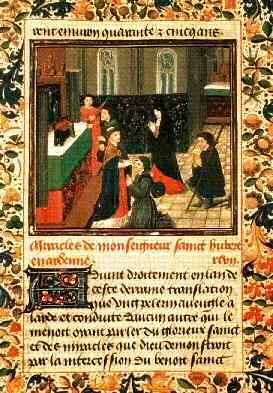 cent environ quarante z cincq ans.
Miracles de monseigneur sainct hubert
en ardenne
Advint droitement en lan de
ceste derraine translation
que vng pelerin aveugle a
laide et conduite daucun autre qui le
menoit oyant parler du glorieux sainct
et des miracles que dieu demonstroit
par la intercession du benoit sainct